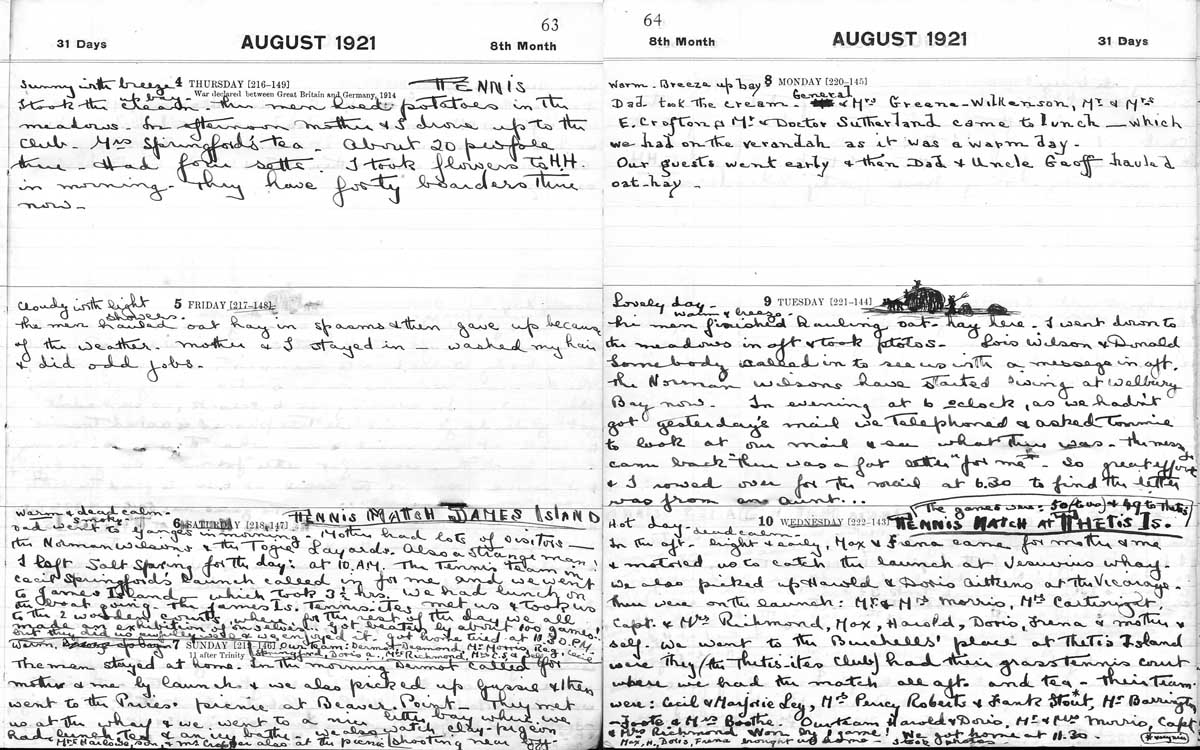 63
31 Days
AUGUST 1921
8th Month
Sunny with breeze
up bay.
4 THURSDAY [216-149]
War declared between Great Britain and Germany, 1914
TENNIS
I took the cream. The men hoed potatoes in the
meadows. In afternoon mother & I drove up to the
club. Mrs Springford's tea. About 20 people
there. Had four setts. I took flowers to H.H.
in morning. They have forty boarders there
now.
Cloudy with light
showers.
5 FRIDAY [217-148]
The men hauled oat hay in spasms & then gave up because
of the weather. Mother & I stayed in — washed my hair
& did odd jobs.
Warm & dead calm.
Smoky.
6 SATURDAY [218-147]
TENNIS MATCH JAMES ISLAND
Dad went to Ganges in morning. Mother had lots of visitors —
the Norman Wilsons & the Togie Layards. Also a strange man!
I left Salt Spring for the day: at 10 A.M. The Tennis team in
Cecil Springford's launch called in for me and we went
to James Island which took 3½ hrs. We had lunch on
the boat going. The James Is. Tennis-ites met us & took us
to the 2 wooden courts, where for the rest of the day we all
made an exhibition of ourselves. Got beaten by about 100 games.
But they did us awfully well & we enjoyed it. Got home tired at 11.30 P.M.
Warm,
7 SUNDAY [219-146]
11 after Trinity
Our team: Dermot, Desmond, Mr Morris, Reg, Cecil
Springford, Doris A, Mrs Richmond, Mrs C.S &
The man stayed at home. In the morning Dermot called for
mother & me by launch & we also picked up Gussie & then
went to the Prices' picnic at Beaver Point. They met
us at the wharf & we went to a nice little bay where we
had lunch, tea & an icy bathe. We also watch clay-pigeon
shooting near
Mrs Harlowe, son, & Mrs Crofter also at the picnic
64
8th Month
AUGUST 1921
31 Days
Warm. Breeze up bay
8 MONDAY [220-145]
Dad took the cream. General & Mrs Greene-Wilkinson, Mr & Mrs
E. Crofton & Mr & Doctor Sutherland came to lunch — which
we had on the verandah as it was a warm day.
Our guests went early & then Dad & Uncle Geoff hauled
oat-hay.
Lovely day.
warm & breeze.
9 TUESDAY [221-144]
The men finished hauling oat-hay here. I went down to
the meadows in aft & took photos. Lois Wilson & Donald
Somebody called in to see us with a message in aft.
The Norman Wilsons have started living at Welbury
Bay now. In evening at 6 oclock, as we hadn't
got yesterday's mail we telephoned & asked Tommie
to look at our mail & see what there was. The mess.
came back "there was a fat letter" for me". So great effort
& I rowed over for the mail at 6.30 to find the letter
was from an aunt...
Hot day.
dead calm.
10 WEDNESDAY [222-143]
The games was: 50 (to us) & 49 to Thetis
TENNIS MATCH AT THETIS IS.
In the aft. bright & early, Max & Frena came for mother & me
& motored us to catch the launch at Vesuvius whay.
We also picked up Harold & Doris Aitkens at the Vicarage.
There were on the launch: Mr & Mrs Morris, Mrs Cartwright,
Capt. & Mrs Richmond, Max, Harold, Doris, Frena & mother &
self. We went to the Burchells' place at Thetis Island
were they (the Thetis-ites Club) had their grass tennis court
where we had the match all aft. and tea. Their team
were: Cecil & Marjorie Ley, Mrs Percy Roberts & Frank Stout, Mr Barrington
-Foote & Mrs Boothe. Our team: Harold & Doris, Mr & Mrs Morris, Capt
& Mrs Richmond. Won by 1 game! We got home at 11.30.
Max, H., Doris, Frena brought us home.